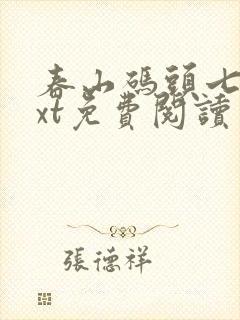 春山碼頭七
xt免費閱讀
張德祥